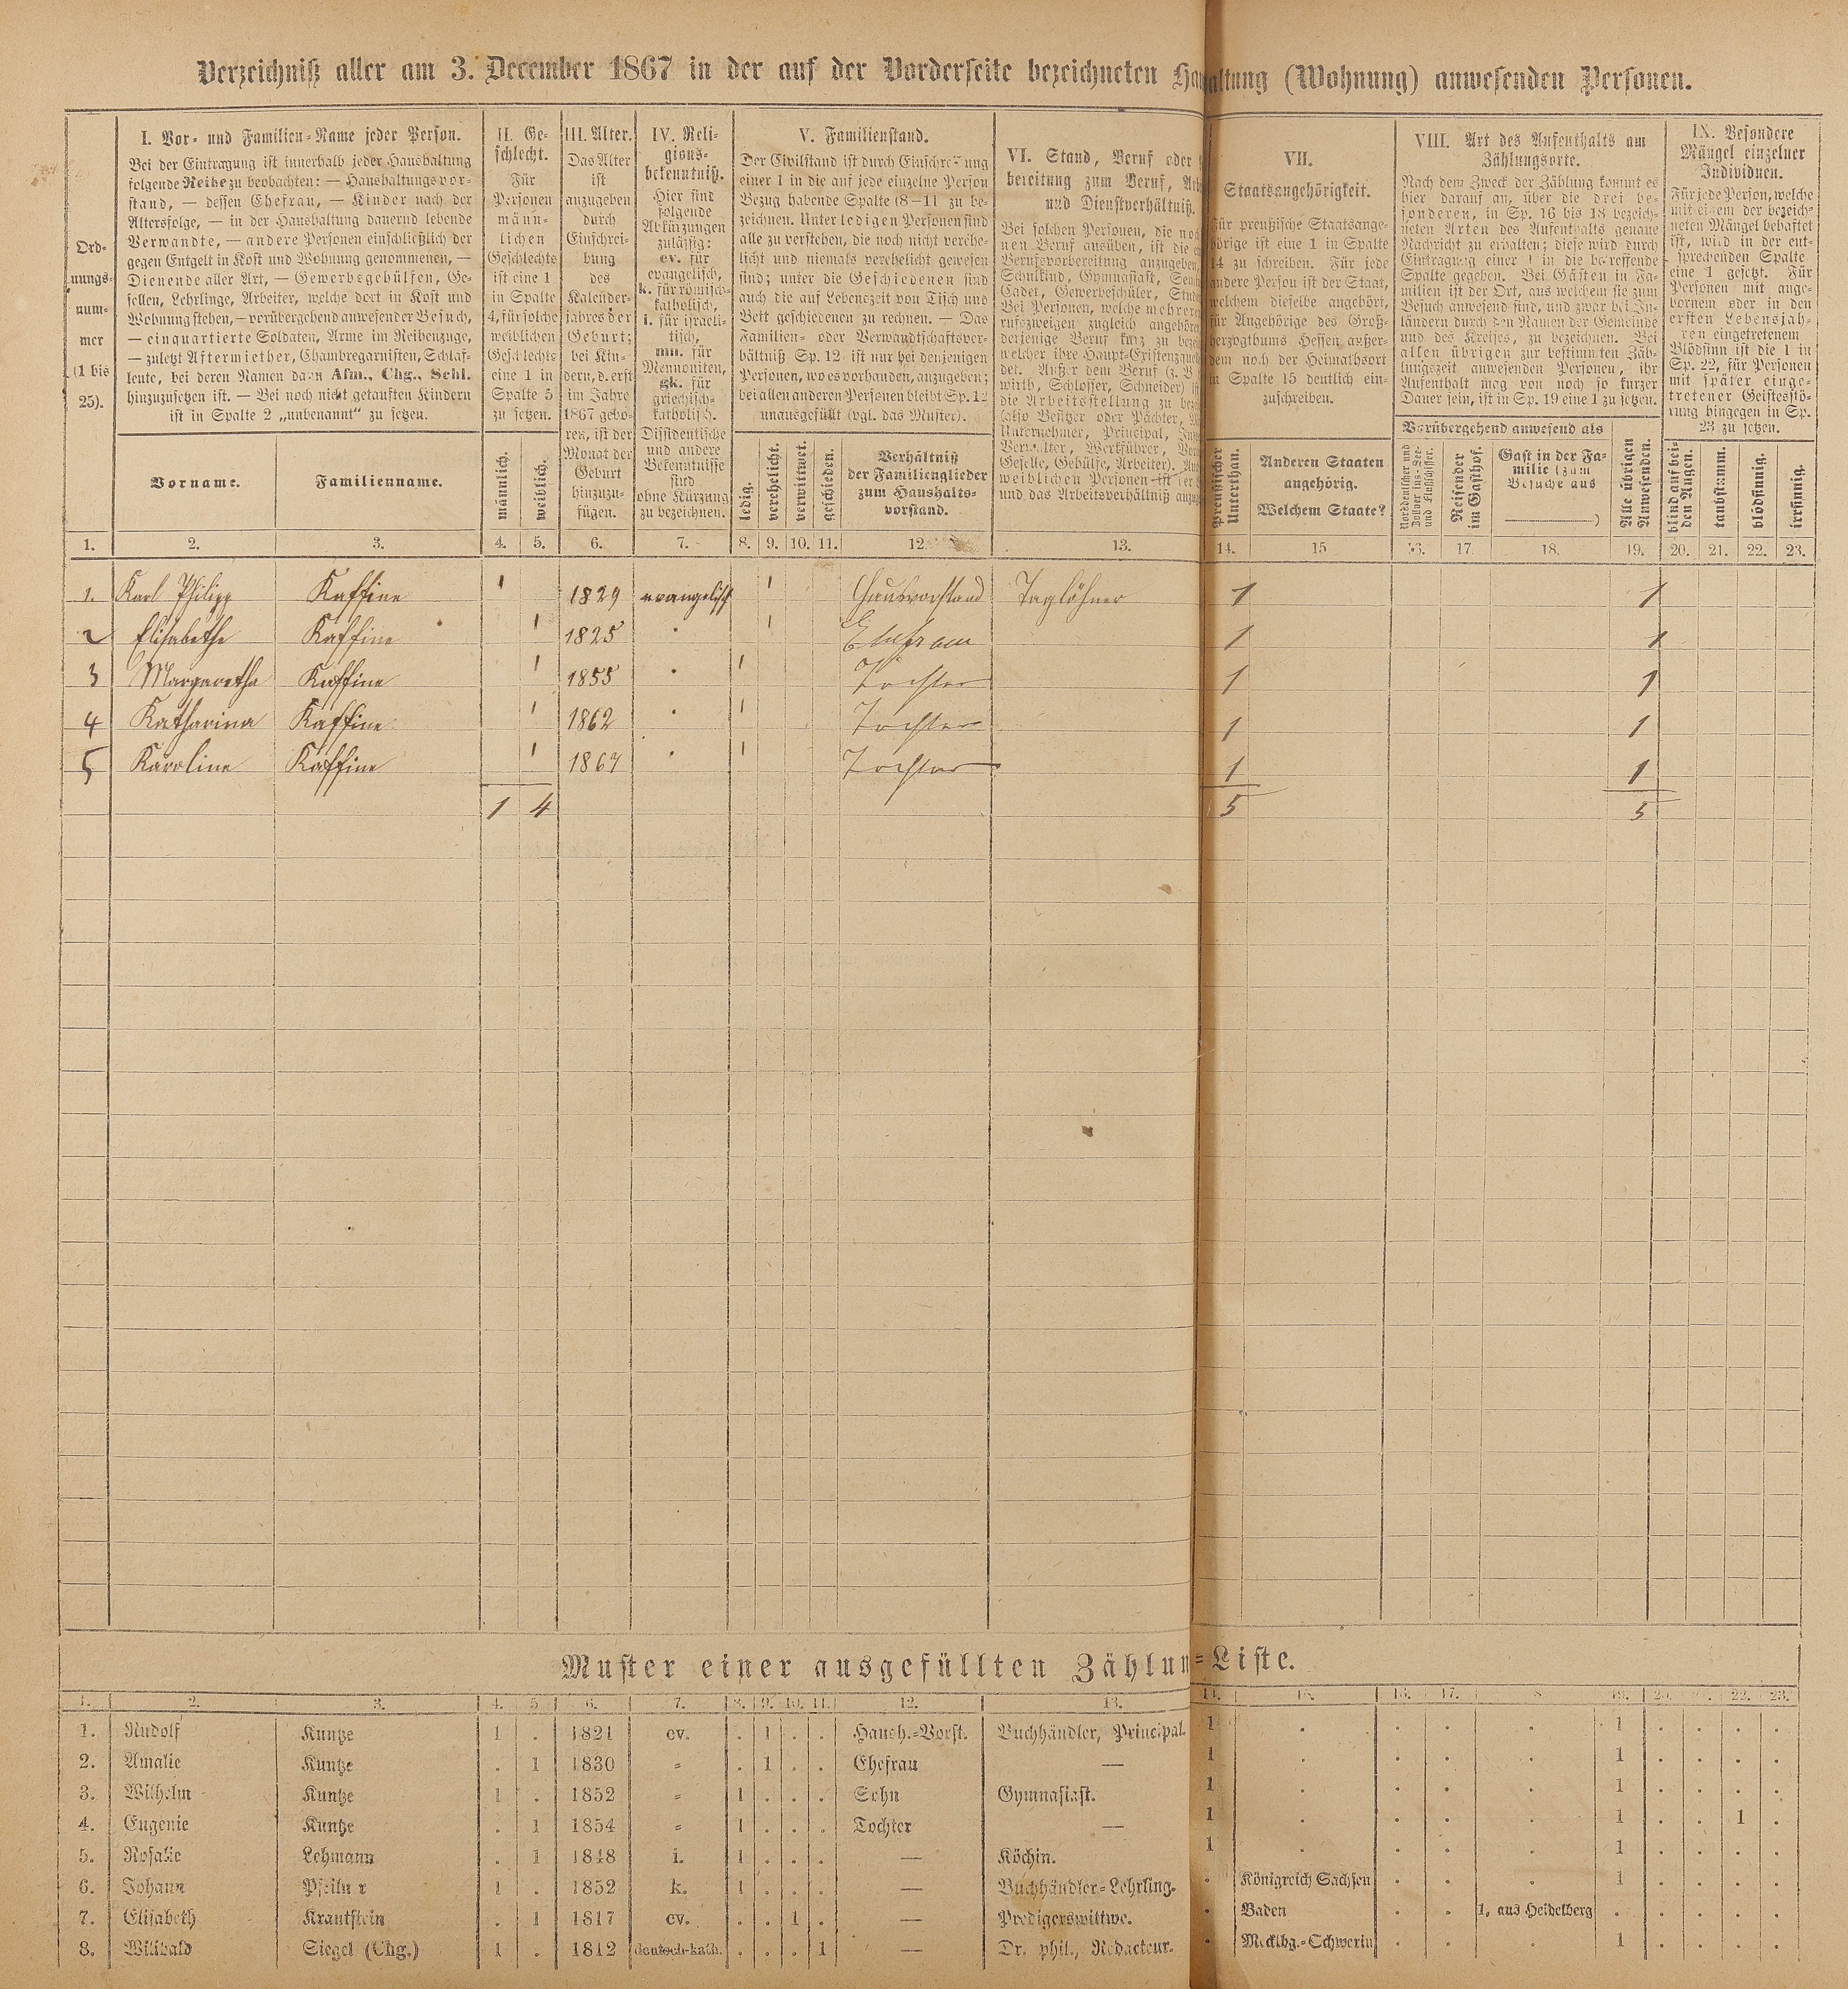 Verzeichniß aller am 3. December 1867 in der auf der Vorderseite bezeichneten Haushaltung (Wohnung) anwesenden Personen.
Ord-
nungs-
num-
mer
(1 bis
25).
I. Vor- und Familien-Name jeder Person.
Bei der Eintragung ist innerhalb jeder Haushaltung
folgende Reihe zu beobachten: — Haushaltungsvor-
stand, — dessen Ehefrau, — Kinder nach der
Altersfolge, — in der Haushaltung dauernd lebende
Verwandte, — andere Personen einschließlich der
gegen Entgelt in Kost und Wohnung genommenen, —
Dienende aller Art, — Gewerbsgehülfen, Ge-
sellen, Lehrlinge, Arbeiter, welche dort in Kost und
Wohnung stehen, — vorübergehend anwesender Besuch,
— einquartierte Soldaten, Arme im Reihenzuge,
— zuletzt Aftermiether, Chambregarnisten, Schlaf-
leute, bei deren Namen dann Afm., Chg., Schl.
hinzuzusetzen ist. — Bei noch nicht getauften Kindern
ist in Spalte 2 „unbenannt" zu setzen.
Vorname.
Familienname.
II. Ge-
schlecht.
Für
Personen
männ-
lichen
Geschlechts
ist eine 1
in Spalte
4, für solche
weiblichen
Geschlechts
eine 1 in
Spalte 5
zu setzen.
männlich.
weiblich.
III. Alter.
Das Alter
ist
anzugeben
durch
Einschrei-
bung
des
Kalender-
jahres der
Geburt;
bei Kin-
dern, d. erst
im Jahre
1867 gebo-
ren, ist der
Monat der
Geburt
hinzuzu-
fügen.
IV. Reli-
gions-
bekenntniß.
Hier sind
folgende
Abkürzungen
zulässig:
ev. für
evangelisch,
k. für römisch-
katholisch,
i. für israeli-
tisch,
mn. für
Mennoniten,
gk. für
griechisch-
katholisch.
Dissidentische
und andere
Bekenntnisse
sind
ohne Kürzung
zu bezeichnen.
V. Familienstand.
Der Civilstand ist durch Einschreibung
einer 1 in die auf jede einzelne Person
Bezug habende Spalte (8—11) zu be-
zeichnen. Unter ledigen Personen sind
alle zu verstehen, die noch nicht verehe-
licht und niemals verehelicht gewesen
sind; unter die Geschiedenen sind
auch die auf Lebenszeit von Tisch und
Bett geschiedenen zu rechnen. — Das
Familien- oder Verwandtschaftsver-
hältniß Sp. 12 ist nur bei denjenigen
Personen, wo es vorhanden, anzugeben;
bei allen anderen Personen bleibt Sp. 12
unausgefüllt (vgl. das Muster).
ledig.
verehelicht.
verwittwet.
geschieden.
Verhältniß
der Familienglieder
zum Haushalts-
vorstand.
VI. Stand, Beruf oder
bereitung zum Beruf,
und Dienstverhältniß.
Bei solchen Personen, die
nen Beruf ausüben, ist die
Berufsvorbereitung anzugeben,
Schulkind, Gymnasiast,
Cadet, Gewerbeschüler,
Bei Personen, welche mehrere
rufszweigen zugleich
derjenige Beruf kurz zu
welcher ihre
det. Außer dem Beruf (z. B.
wirth, Schlosser, Schneider)
die Arbeitsstellung zu
(also Besitzer oder Pächter,
Unternehmer, Principal,
Verwalter, Werkführer,
Geselle, Gehülfe, Arbeiter).
weiblichen Personen ist
und das Arbeitsverhältniß
VII.
Staatsangehörigkeit.
Für preußische Staatsange-
hörige ist eine 1 in Spalte
14 zu schreiben. Für jede
andere Person ist der Staat,
welchem dieselbe angehört,
für Angehörige des Groß-
herzogthums Hessen außer-
dem noch der Heimathsort
in Spalte 15 deutlich ein-
zuschreiben.
Preußischer
Unterthan.
Anderen Staaten
angehörig.
Welchem Staate?
VIII. Art des Aufenthalts am
Zählungsorte.
Nach dem Zweck der Zählung kommt es
hier darauf an, über die drei be-
sonderen, in Sp. 16 bis 18 bezeich-
neten Arten des Aufenthalts genaue
Nachricht zu erhalten; diese wird durch
Eintragung einer 1 in die betreffende
Spalte gegeben. Bei Gästen in Fa-
milien ist der Ort, aus welchem sie zum
Besuch anwesend sind, und zwar bei In-
ländern durch den Namen der Gemeinde
und des Kreises, zu bezeichnen. Bei
allen übrigen zur bestimmten Zäh-
lungszeit anwesenden Personen, ihr
Aufenthalt mag von noch so kurzer
Dauer sein, ist in Sp. 19 eine 1 zu setzen.
Vorübergehend anwesend als
Norddeutscher und
Zollverins-See-
und Flußschiffer.
Reisender
im Gasthof.
Gast in der Fa-
milie (zum
Besuche aus
)
Alle übrigen
Anwesenden.
IX. Besondere
Mängel einzelner
Individuen.
Für jede Person, welche
mit einem der bezeich-
neten Mängel behaftet
ist, wird in der ent-
sprechenden Spalte
eine 1 gesetzt. Für
Personen mit ange-
bornem oder in den
ersten Lebensjah-
ren eingetretenem
Blödsinn ist die 1 in
Sp. 22, für Personen
mit später einge-
tretener Geistesstö-
rung hingegen in Sp.
23 zu setzen.
blind auf bei-
den Augen.
taubstumm.
blödsinnig.
irrsinnig.
1. 2. 3. 4. 5. 6. 7. 8. 9. 10. 11. 12. 13. 14. 15 16. 17. 18. 19. 20. 21. 22. 23.
1. Karl Philipp Kaffine 1 1829 evangelisch 1 Hausvorstand Taglöhner 1 1
2 Elisabethe Kaffine 1 1825 " 1 Ehefrau 1 1
3 Margaretha Kaffine 1 1855 " 1 Tochter 1 1
4 Katharina Kaffine 1 1862 " 1 Tochter 1 1
5 Karoline Kaffine 1 1867 " 1 Tochter 1 1
1 4 5 5
Muster einer ausgefüllten Zählungs-Liste.
1. 2. 3. 4. 5. 6. 7. 8. 9. 10. 11. 12. 13. 14. 15. 16. 17. 8 19. 20. 22. 23.
1. Rudolf Kuntze 1 . 1821 ev. . 1 . . Haush.-Vorst. Buchhändler, Principal. 1 . . . . 1 . . . .
2. Amalie Kuntze . 1 1830 = . 1 . . Ehefrau — 1 . . . . 1 . . . .
3. Wilhelm Kuntze 1 . 1852 = 1 . . . Sohn Gymnasiast. 1 . . . . 1 . . . .
4. Eugenie Kuntze . 1 1854 = 1 . . . Tochter — 1 . . . . 1 . . 1 .
5. Rosalie Lehmann . 1 1848 i. 1 . . . — Köchin. 1 . . . . 1 . . . .
6. Johann Pfeilner 1 . 1852 k. 1 . . . — Buchhändler-Lehrling. . Königreich Sachsen . . . 1 . . . .
7. Elisabeth Krautstein . 1 1817 ev. . . 1 . — Predigerswittwe. . Baden . . 1, aus Heidelberg . . . . .
8. Wilibald Siegel (Chg.) 1 . 1812 deutsch-kath. . . . 1 — Dr. phil., Redacteur. . Mecklbg.-Schwerin . . . 1 . . . .